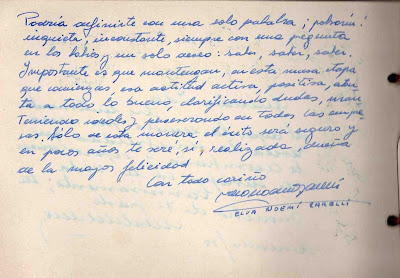 Podría definirte con una sola palabra; ¡polvorín!
inquieta, inconstante, siempre con una pregunta
en los labios y un solo deseo: saber, saber, saber.
Importante es que mantengas, en esta nueva etapa
que comienzas, esa actitud activa, positiva, abier
ta a todo lo bueno, clarificando dudas, man
teniendo ideales y perseverando en todas las empre
sas. Sólo de esta manera el éxito será seguro y
en pocos años te veré, sí, realizada, dueña
de la mayor felicidad
Con todo cariño
ELVA NOEMÍ ZARELLI